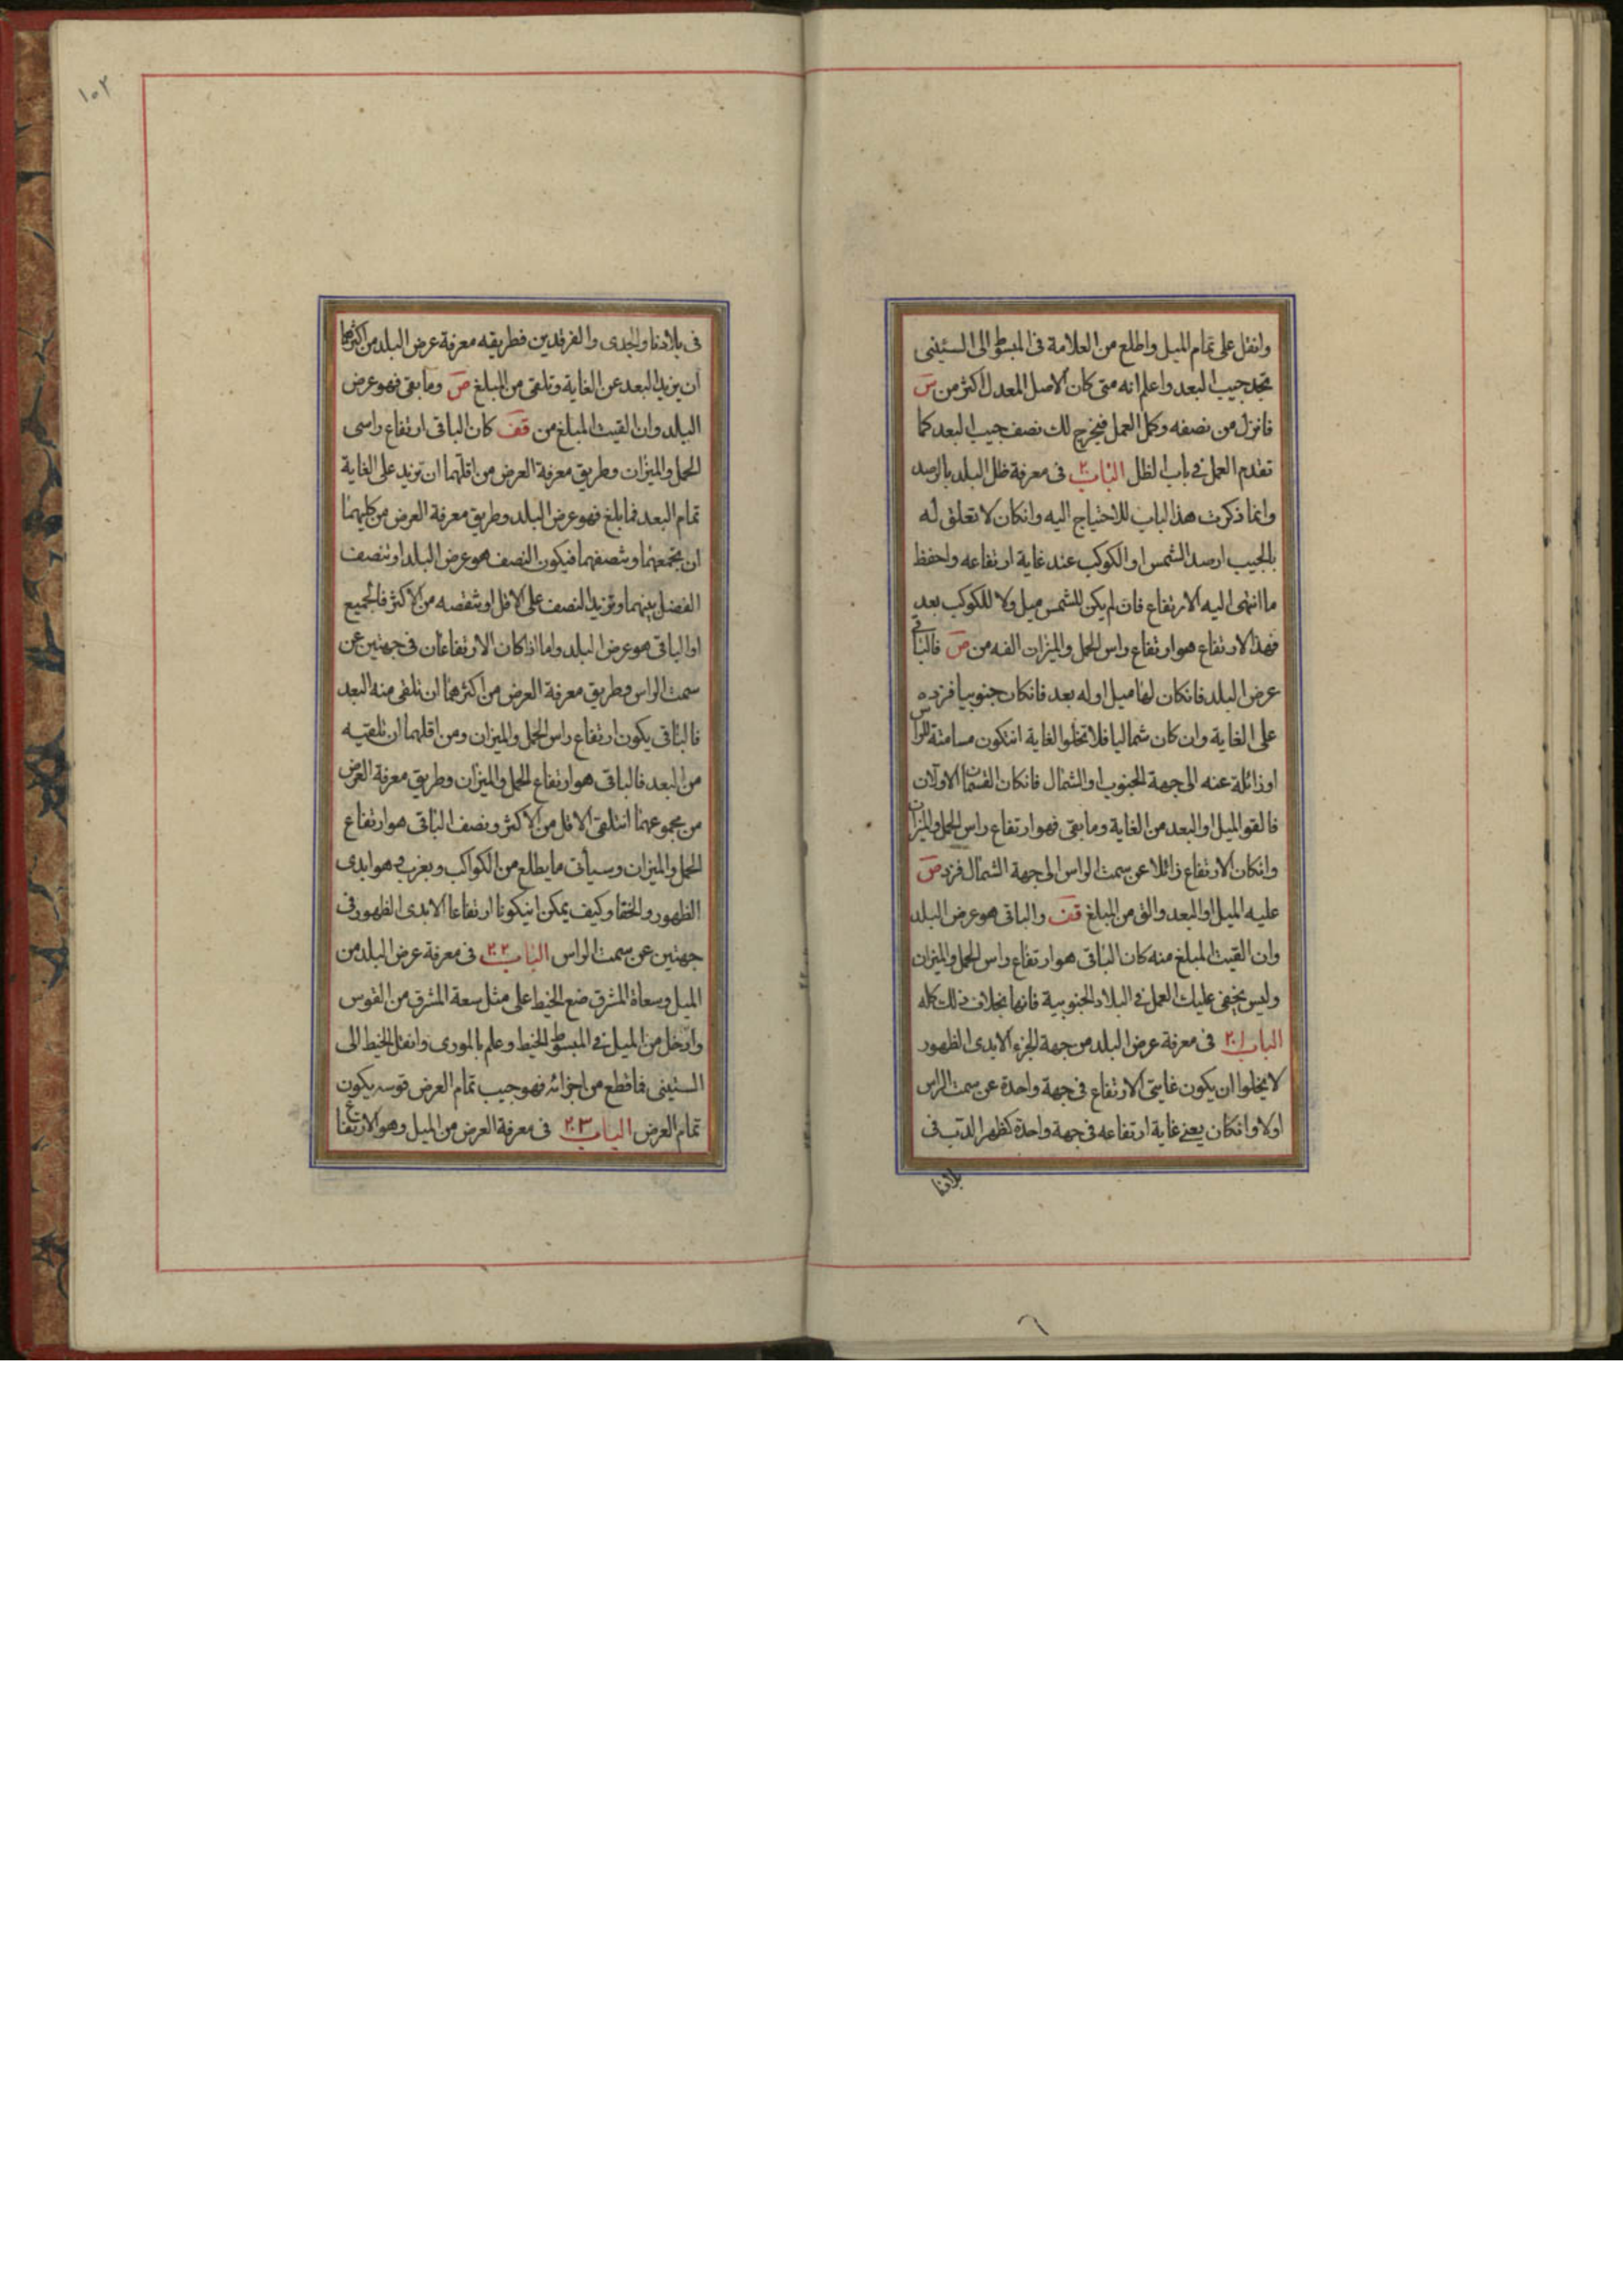 وانقل على تمام الميل واطلع من العلامة في المبسوط الى الستيني
تجد جيب البعد واعلم انه متى كان الاصل المعدل اكثر من س
فانزل من نصفه وكمل العمل فيخرج لك نصف جيب البعد كما
تقدم العمل في باب الظل الباب ٢٠ في معرفة ظل البلد بالرصد
وانما ذكرت هذا الباب للاحتياج اليه وانكان لا تعلق له
بالجيب ارصد الشمس او الكوكب عند غاية ارتفاعه واحفظ
ما انتهى اليه الارتفاع فان لم يكن للشمس ميل ولا للكوكب بعد
فهذا الارتفاع هو ارتفاع راس الحمل والميزان القه من ص فالباقي
عرض البلد فانكان لها ميل او له بعد فانكان جنوبيا فزده
على الغاية وان كان شماليا فلا تخلوا الغاية انتكون مسامتة للراس
او زائلة عنه الى جهة الجنوب او الشمال فانكان القسمان الاولان
فالقو الميل او البعد من الغاية وما بقى فهو ارتفاع راس الحمل والميزان
وانكان الارتفاع زائلا عن سمت الراس الى جهة الشمال فزد ص
عليه الميل او البعد والق من المبلغ قف والباقى هو عرض البلد
وان القيت المبلغ منه كان الباقى هو ارتفاع راس الحمل والميزان
وليس يخفى عليك العمل في البلاد الجنوبية فانها بخلاف ذلك كله
الباب ٢٠١ في معرفة عرض البلد من جهة الجزء الابدى الظهور
لا يخلوا ان يكون غايتى الارتفاع في جهة واحدة عن سمت الراس
اولا وانكان يعنى غاية ارتفاعه في جهة واحدة كظهر الدب في
بلادنا
١٠٢
فى بلادنا والجدى والفرقدين فطريقه معرفة عرض البلد من اكثرهما
ان يزيد البعد عن الغاية وتلقى من المبلغ ص وما بقى فهو عرض
البلد وان القيت المبلغ من قف كان الباقى ارتفاع راسى
الحمل والميزان وطريق معرفة العرض من اقلهما ان تزيد على الغاية
تمام البعد فما بلغ فهو عرض البلد وطريق معرفة العرض من كليهما
ان تجمعهما وتنصفهما فيكون النصف هو عرض البلد او تنصف
الفضل بينهما وتزيد النصف على الاقل او تنقصه من الاكثر فالجميع
او الباقى هو عرض البلد واما اذا كان الارتفاعان في جهتين عن
سمت الراس فطريق معرفة العرض من اكثرهما ان تلقى منه البعد
فالباقى يكون ارتفاع راس الحمل والميزان ومن اقلهما ان تلقيه
من البعد فالباقى هو ارتفاع الحمل والميزان وطريق معرفة العرض
من مجموعهما انتلقى الاقل من الاكثر ونصف الباقى هو ارتفاع
الحمل والميزان وسيأتى ما يطلع من الكواكب ويغرب وما هو ابدى
الظهور والخفا وكيف يمكن انيكونا ارتفاعا الابدى الظهور في
جهتين عن سمت الراس الباب ٢٠٢ في معرفة عرض البلد من
الميل وسعاة المشرق ضع الخيط على مثل سعة المشرق من القوس
وادخل من الميل في المبسوط للخيط وعلم بالمورى وانقل الخيط الى
الستينى فما قطع من اجزائه فهو جيب تمام العرض قوسه يكون
تمام العرض الباب ٢٠٣ في معرفة العرض من الميل وهو الارتفاع